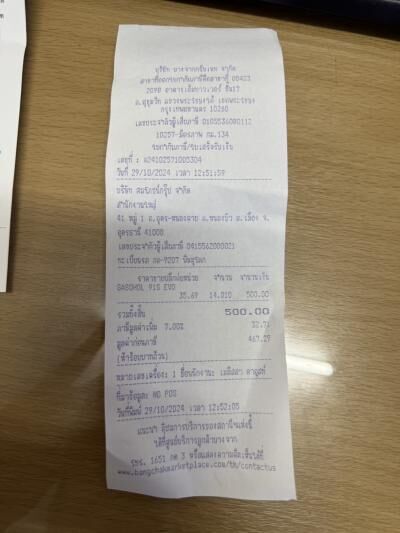 บริษัท บางจากกรีนเนท จำกัด
สาขาที่ออกใบกำกับภาษีคือสาขาที่ 00423
2098 อาคารเอ็มทาวเวอร์ ชั้น17
ถ.สุขุมวิท แขวงพระโขนงใต้ เขตพระโขนง
กรุงเทพมหานคร 10260
เลขประจำตัวผู้เสียภาษี 0105536000112
10257-มิตรภาพ กม.134
ใบกำกับภาษี/ใบเสร็จรับเงิน
เลขที่ : 424102571005304
วันที่ 29/10/2024 เวลา 12:51:59
บริษัท จำกัด
สำนักงานใหญ่
41 หมู่ 1 ถ.อุดร-หนองคาย ต.หนองบัว อ.เมือง จ.
อุดรธานี 41000
เลขประจำตัวผู้เสียภาษี 0415562000021
ทะเบียนรถ กล-9207 พิษณุโลก
ราคาขายปลีกต่อหน่วย จำนวน จำนวนเงิน
GASOHOL 91S EVO
35.69 14.010 500.00
รวมทั้งสิ้น 500.00
ภาษีมูลค่าเพิ่ม 7.00% 32.71
มูลค่าก่อนภาษี 467.29
(ห้าร้อยบาทถ้วน)
หมายเลขเครื่อง: 1 ชื่อพนักงาน:
ที่มาข้อมูล: NO POS
วันที่พิมพ์ 29/10/2024 เวลา 12:52:05
แนะนำ ติชมการบริการของสถานีแห่งนี้
ได้ที่ศูนย์บริการลูกค้าบางจาก
โทร. 1651 กด 3 หรือแสดงความคิดเห็นได้ที่
www.bangchakmarketplace.com/th/contactus